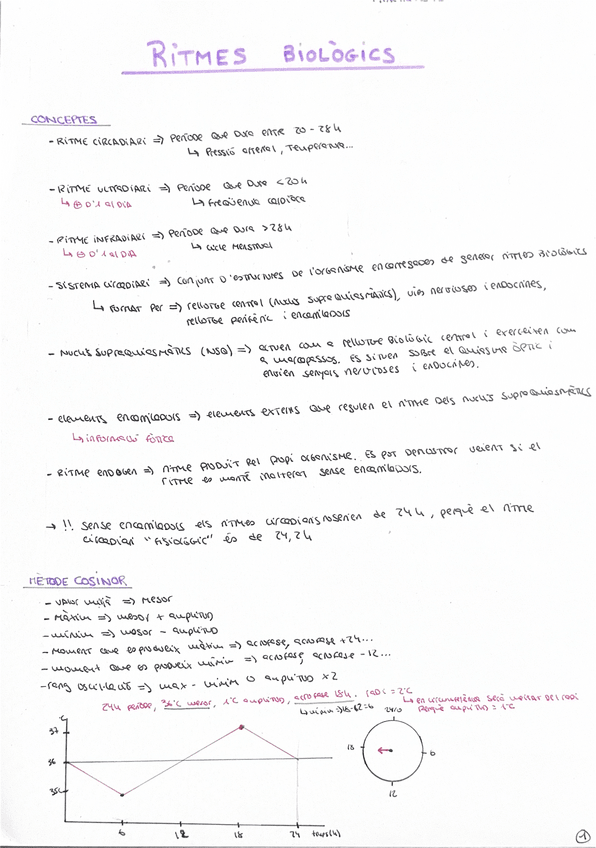 RITMES BIOLÒGICS
CONCEPTES
- RITME CIRCADIARI => Període que dura entre 20-28h
↳ Pressió arterial, Temperatura...
- RITME ULTRADIARI => Període que dura <20h
↳ ⊕ D'1 al DIA ↳ Freqüència cardíaca
- RITME INFRADIARI => Període que dura >28h
↳ ⊖ D'1 al DIA ↳ cicle menstrual
- SISTEMA CIRCADIARI => conjunt d'estructures de l'organisme encarregades de generar ritmes biològics
↳ Format per => rellotge central (nuclis supraquiasmàtics), vies nervioses i endocrines,
rellotge perifèric i encarriladors
- NUCLIS SUPRAQUIASMÀTICS (NSQ) => actuen com a rellotge biològic central i exerceixen com
a marcapassos. Es situen sobre el quiasme òptic i
envien senyals nervioses i endocrines.
- elements encarriladors => elements externs que regulen el ritme dels nuclis supraquiasmàtics
↳ informació fòtica
- RITME ENDOGEN => ritme produït pel propi organisme. Es pot demostrar veient si el
ritme es manté inalterat sense encarriladors.
→ !! Sense encarriladors els ritmes circadians no serien de 24h, perquè el ritme
circadiari "fisiològic" és de 24,2h
MÈTODE COSINOR
- valor mitjà => mesor
- màxim => mesor + amplitud
- mínim => mesor - amplitud
- moment que es produeix màxim => acrofase, acrofase +24...
- moment que es produeix mínim => acrofase, acrofase -12...
- rang oscil·lació => max - mínim o amplitud x2
24h període, 36ºC mesor, 1ºC amplitud, acrofase 18h. radi = 2ºC
↳ mínim => 18-12=6
↳ en circumferència serà meitat del radi
perquè amplitud = 1ºC
ºC
37
36
35
6 12 18 24 temps(h)
24/0
18
6
12
1